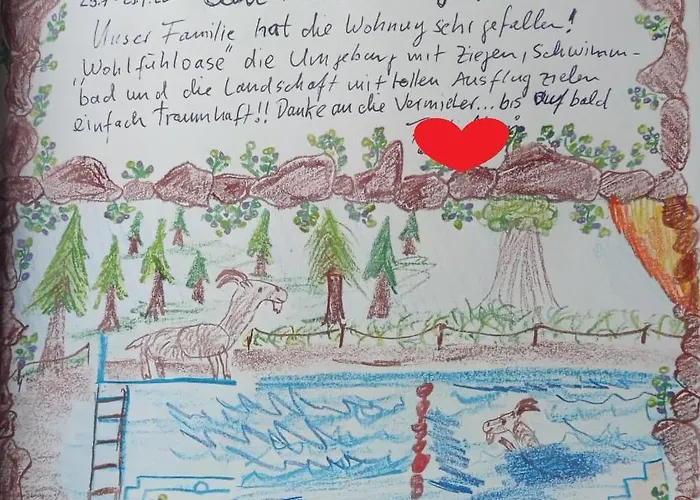 Unser Familie hat die Wohnung sehr gefallen!
"Wohlfühloase" die Umgebung mit Ziegen, Schwimm-
bad und die Landschaft mit tollen Ausflug zielen
einfach Traumhaft!! Danke an die Vermieter... bis auf bald